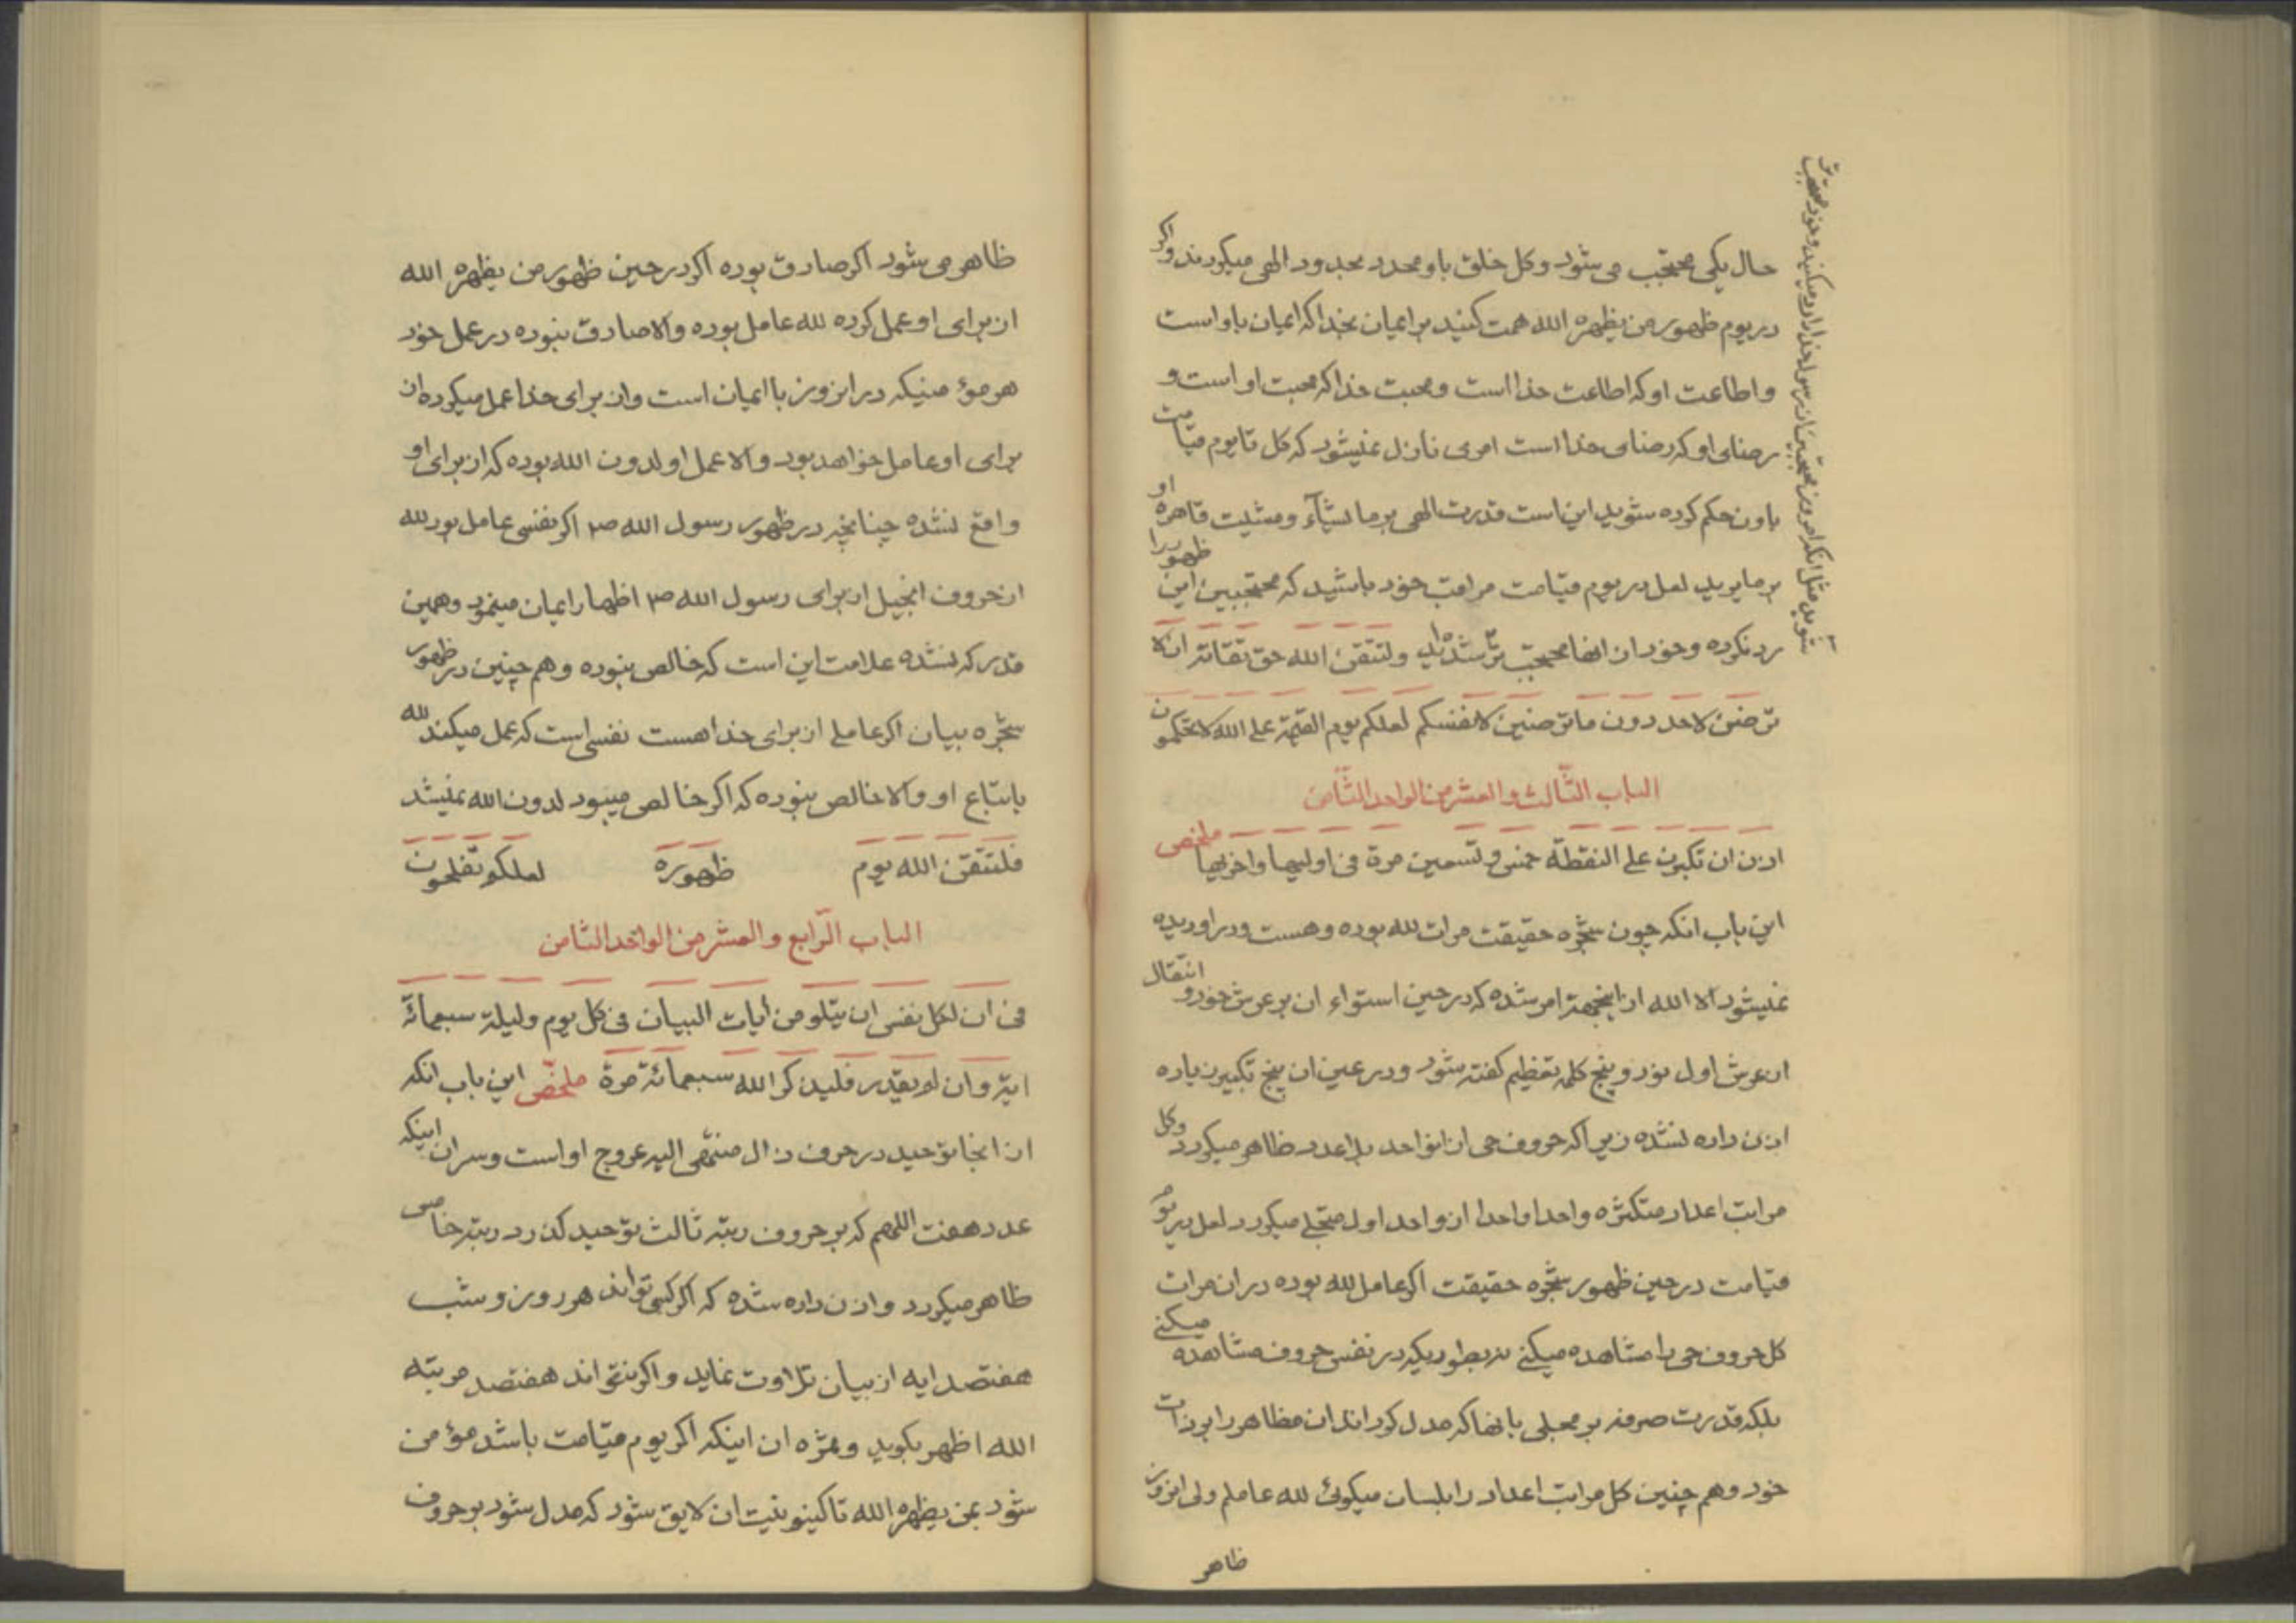 حال یکی محتجب می شود وکل خلق باو محدد بحدود الهی میکردند واکر
در یوم ظهور من یظهره الله همت کنید بر ایمان بخدا که ایمان باو است
و اطاعت او که اطاعت خدا است و محبت خدا که محبت او است و
رضای او که رضای خدا است امری نازل نمیشود که کل تا یوم قیامت
باون حکم کرده شوید این است قدرت الهی بر ما یشآء و مشیت قاهره او
بر ما یرید لعل در یوم قیامت مراقب خود باشید که محتجبین این ظهور را
رد نکرده و خود از انها محتجب تر شده اید ولتتقن الله حق تقاته ان لا
ترضین لاحد دون ما ترضین لانفسکم لعلکم یوم القیمة علی الله لا تحکمون
الباب الثالث والعشر من الواحد الثامن
اذن ان تکبرن علی النقطة خمس و تسعین مرة فی اولیها واخریها ملخص
این باب انکه چون شجره حقیقت مرات لله بوده و هست و در او دیده
نمیشود الا الله از اینجهة امر شده که در حین استواء ان بر عرش خود و انتقال
از عرش اول نود و پنج کلمه تعظیم کفته شود و در عین ان پنج تکبیر زیاده
اذن داده نشده زیرا که حروف حی از انواحد بلا عدد ظاهر میکردد وکل
مراتب اعداد متکثره واحدا واحدا از واحد اول متجلی میکردد لعل در یوم
قیامت در حین ظهور شجره حقیقت اکر عامل لله بوده در ان مرات
کل حروف حی را مشاهده میکنی نه بطوریکه در نفس حروف مشاهده میکنی
بلکه قدرت صرفه بر مجلی بانها که مدل کرداند ان مظاهر را بر ذات
خود و هم چنین کل مراتب اعداد را بلسان میکوئی لله عاملم ولی انروز
ظاهر
ظاهر می شود اکر صادق بوده اکر در حین ظهور من یظهره الله
از برای او عمل کرده لله عامل بوده والا صادق نبوده در عمل خود
هر مؤمنیکه در انروز با ایمان است و از برای خدا عمل میکرده از
برای او عامل خواهد بود والا عمل او لدون الله بوده که از برای او
واقع نشده چنانچه در ظهور رسول الله ص اکر نفسی عامل بود لله
از حروف انجیل از برای رسول الله ص اظهار ایمان مینمود و همین
قدر که نشده علامت این است که خالص نبوده و هم چنین در ظهور
شجره بیان اکر عاملی از برای خدا هست نفسی است که عمل میکند لله
باتباع او والا خالص نبوده که اکر خالص میبود لدون الله نمیشد
فلتتقن الله یوم ظهوره لعلکم تفلحون
الباب الرابع والعشر من الواحد الثامن
فی ان لکل نفس ان یتلو من ایات البیان فی کل یوم ولیلة سبعمائة
ایة وان لم یقدر فلیذکر الله سبعمائة مرة ملخص این باب انکه
از انجا توحید در حرف ذال منتهی الیه عروج او است و سر ان اینکه
عدد هفت اللهم که بر حروف رتبه ثالث توحید کذرد رتبه خامس
ظاهر میکردد و اذن داده شده که اکر کسی تواند هر روز و شب
هفتصد ایه از بیان تلاوت نماید و اکر نتواند هفتصد مرتبه
الله اظهر بکوید و ثمره ان اینکه اکر یوم قیامت باشد مؤمن
شود بمن یظهره الله تا کینونیت ان لایق شود که مدل شود بر حروف